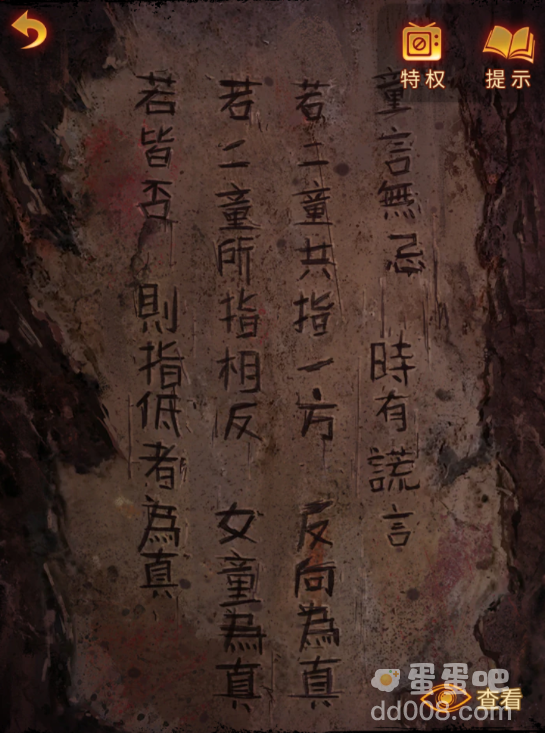 特权
提示
童言無忌 時有謊言
若二童共指一方 反向為真
若二童所指相反 女童為真
若皆否 則指低者為真
查看
蛋蛋吧
dd008.com